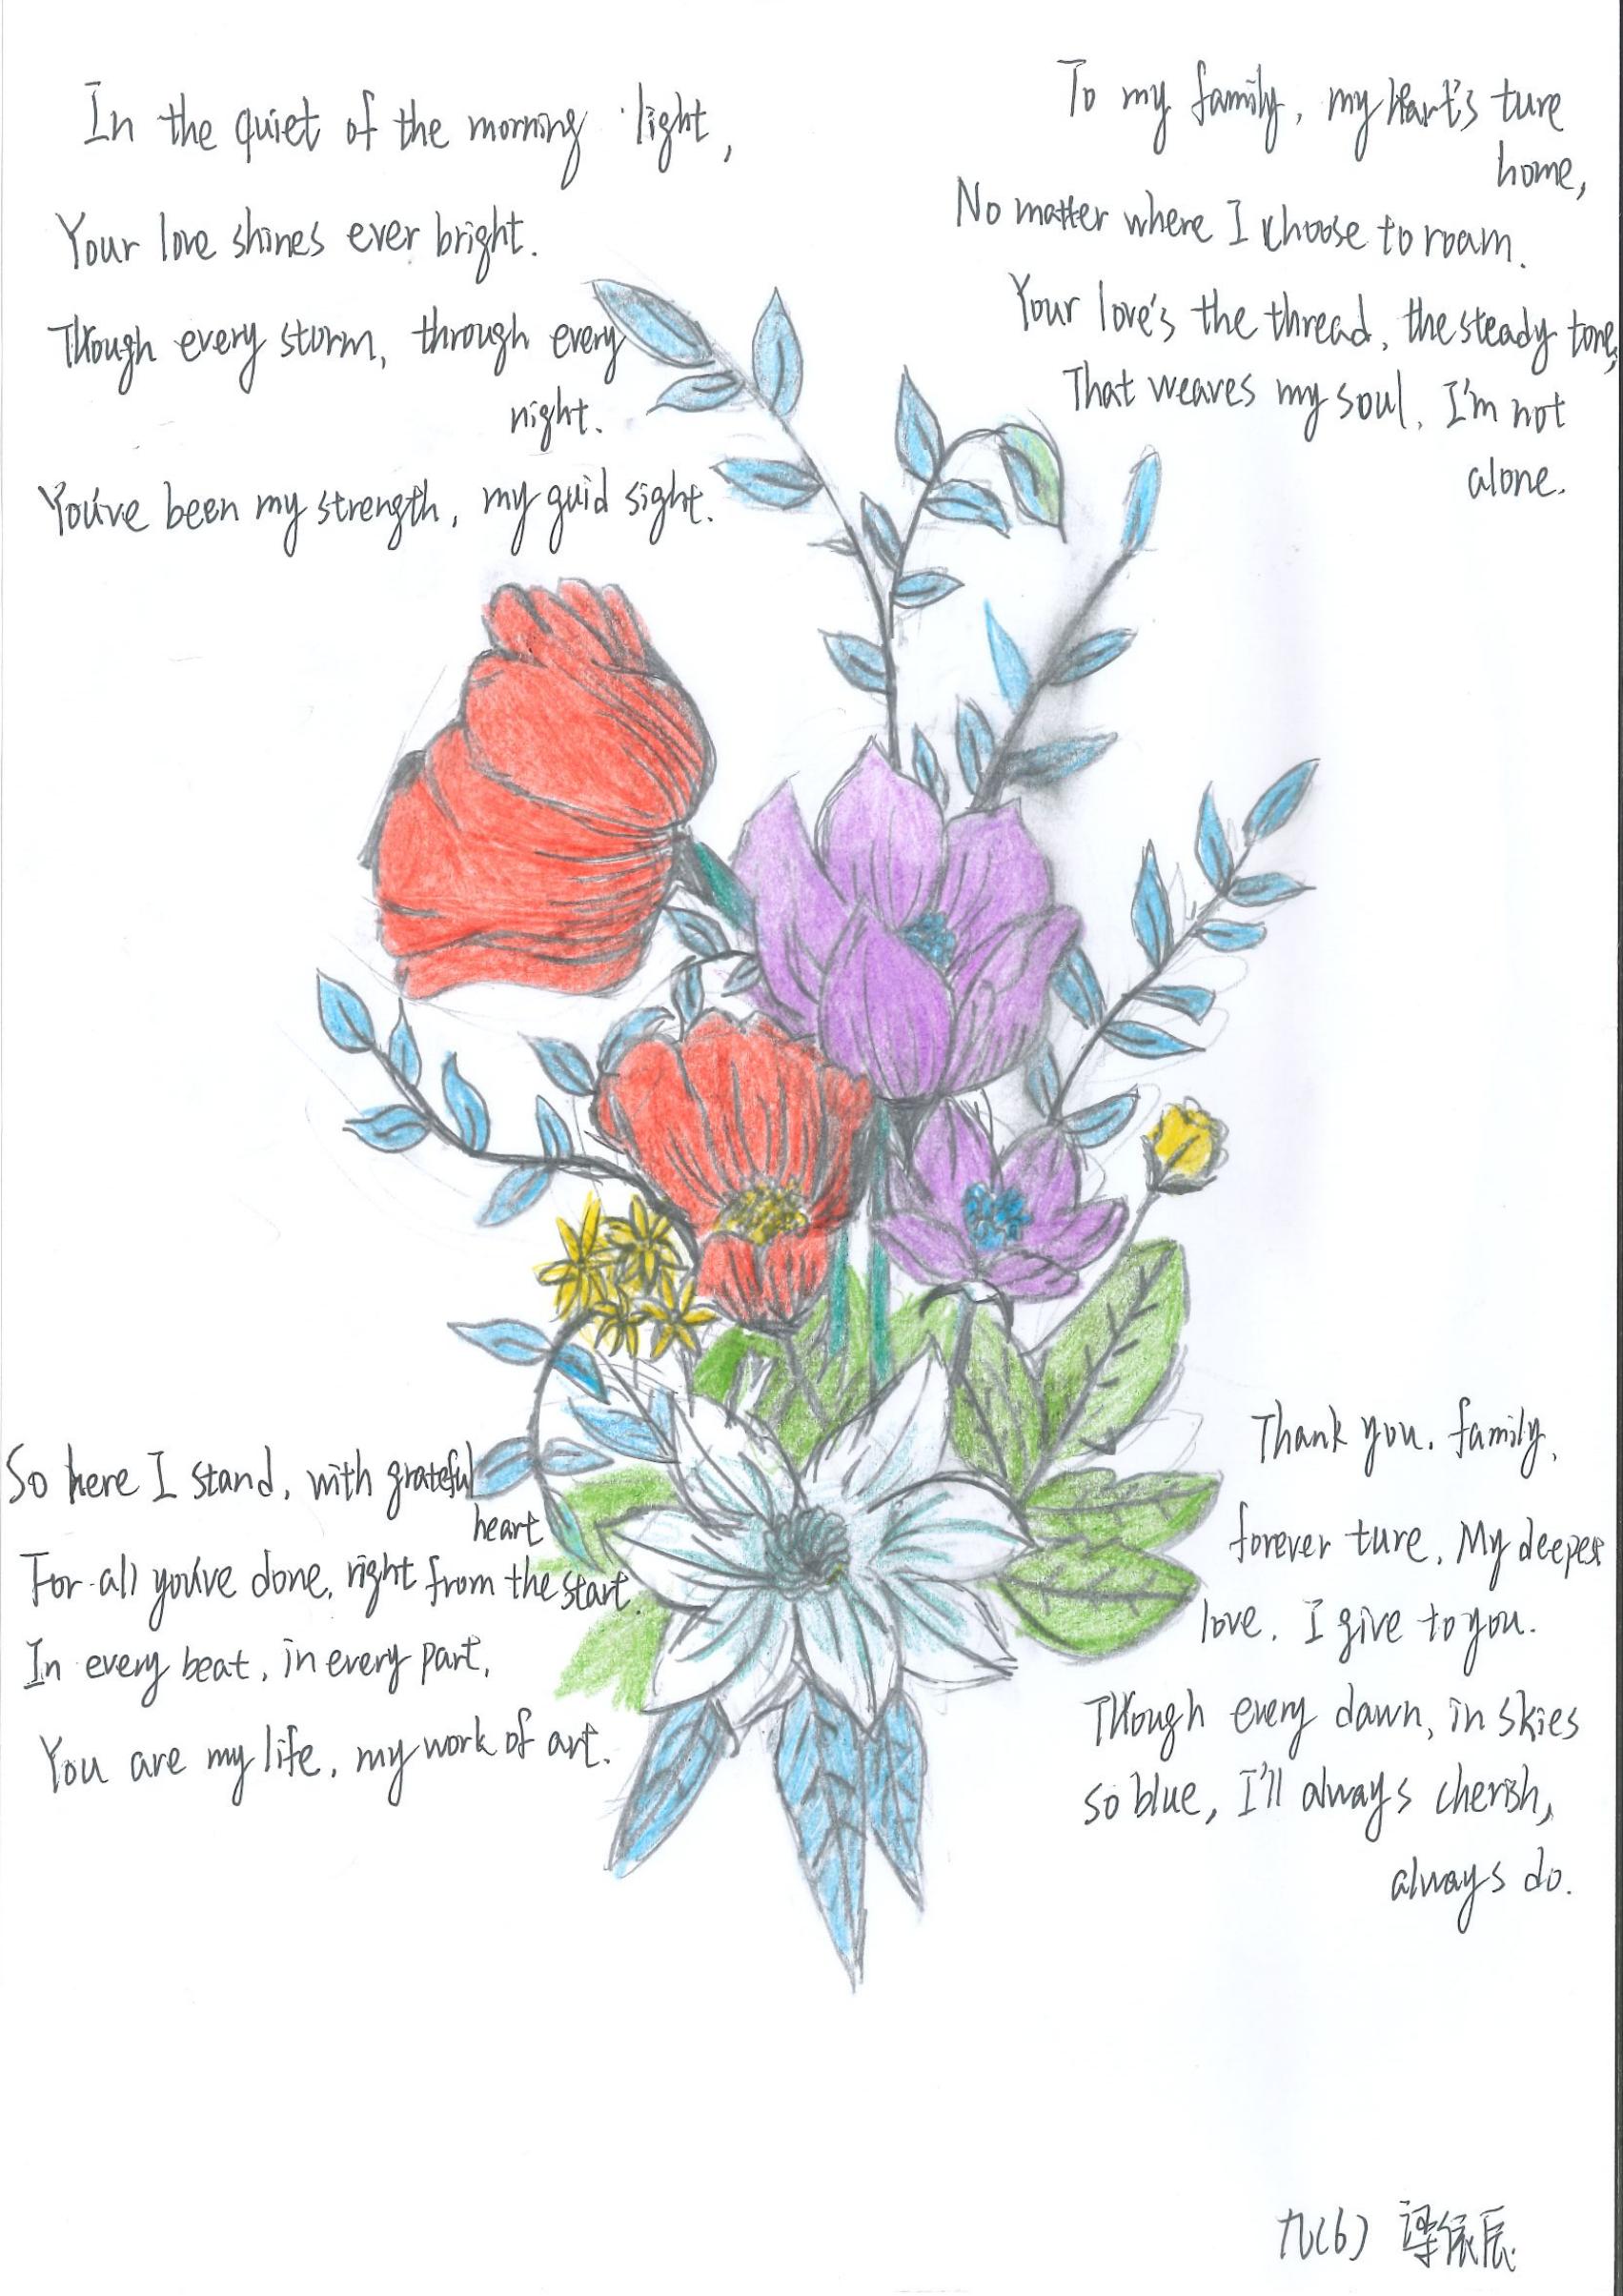 In the quiet of the morning light,
Your love shines ever bright.
Though every storm, through every
night.
You've been my strength, my guid sight.
To my family, my heart's ture
home,
No matter where I choose to roam.
Your love's the thread, the steady tone,
That weaves my soul, I'm not
alone.
So here I stand, with grateful
heart
For all you've done, right from the start.
In every beat, in every part,
You are my life, my work of art.
Thank you, family,
forever ture, My deepest
love, I give to you.
Though every dawn, in skies
so blue, I'll always cherish,
always do.
九(6)